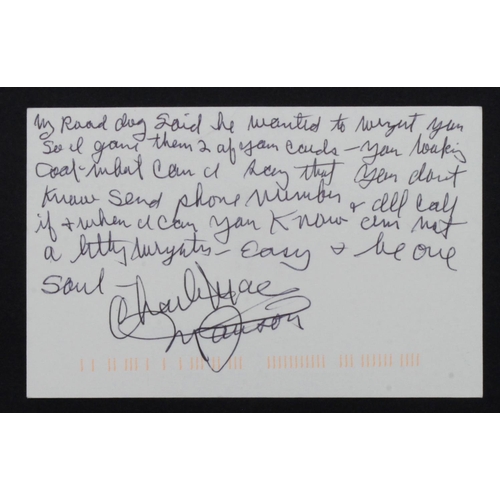 My Road dog Said he wanted to wryet you
So I gave them 2 of your cards - you looking
Cool - what can I say that you don't
Know Send phone number & I'll call
if & when I can you Know I'm not
a letty wryter - easy & be one
Soul -
Charlie
Manson